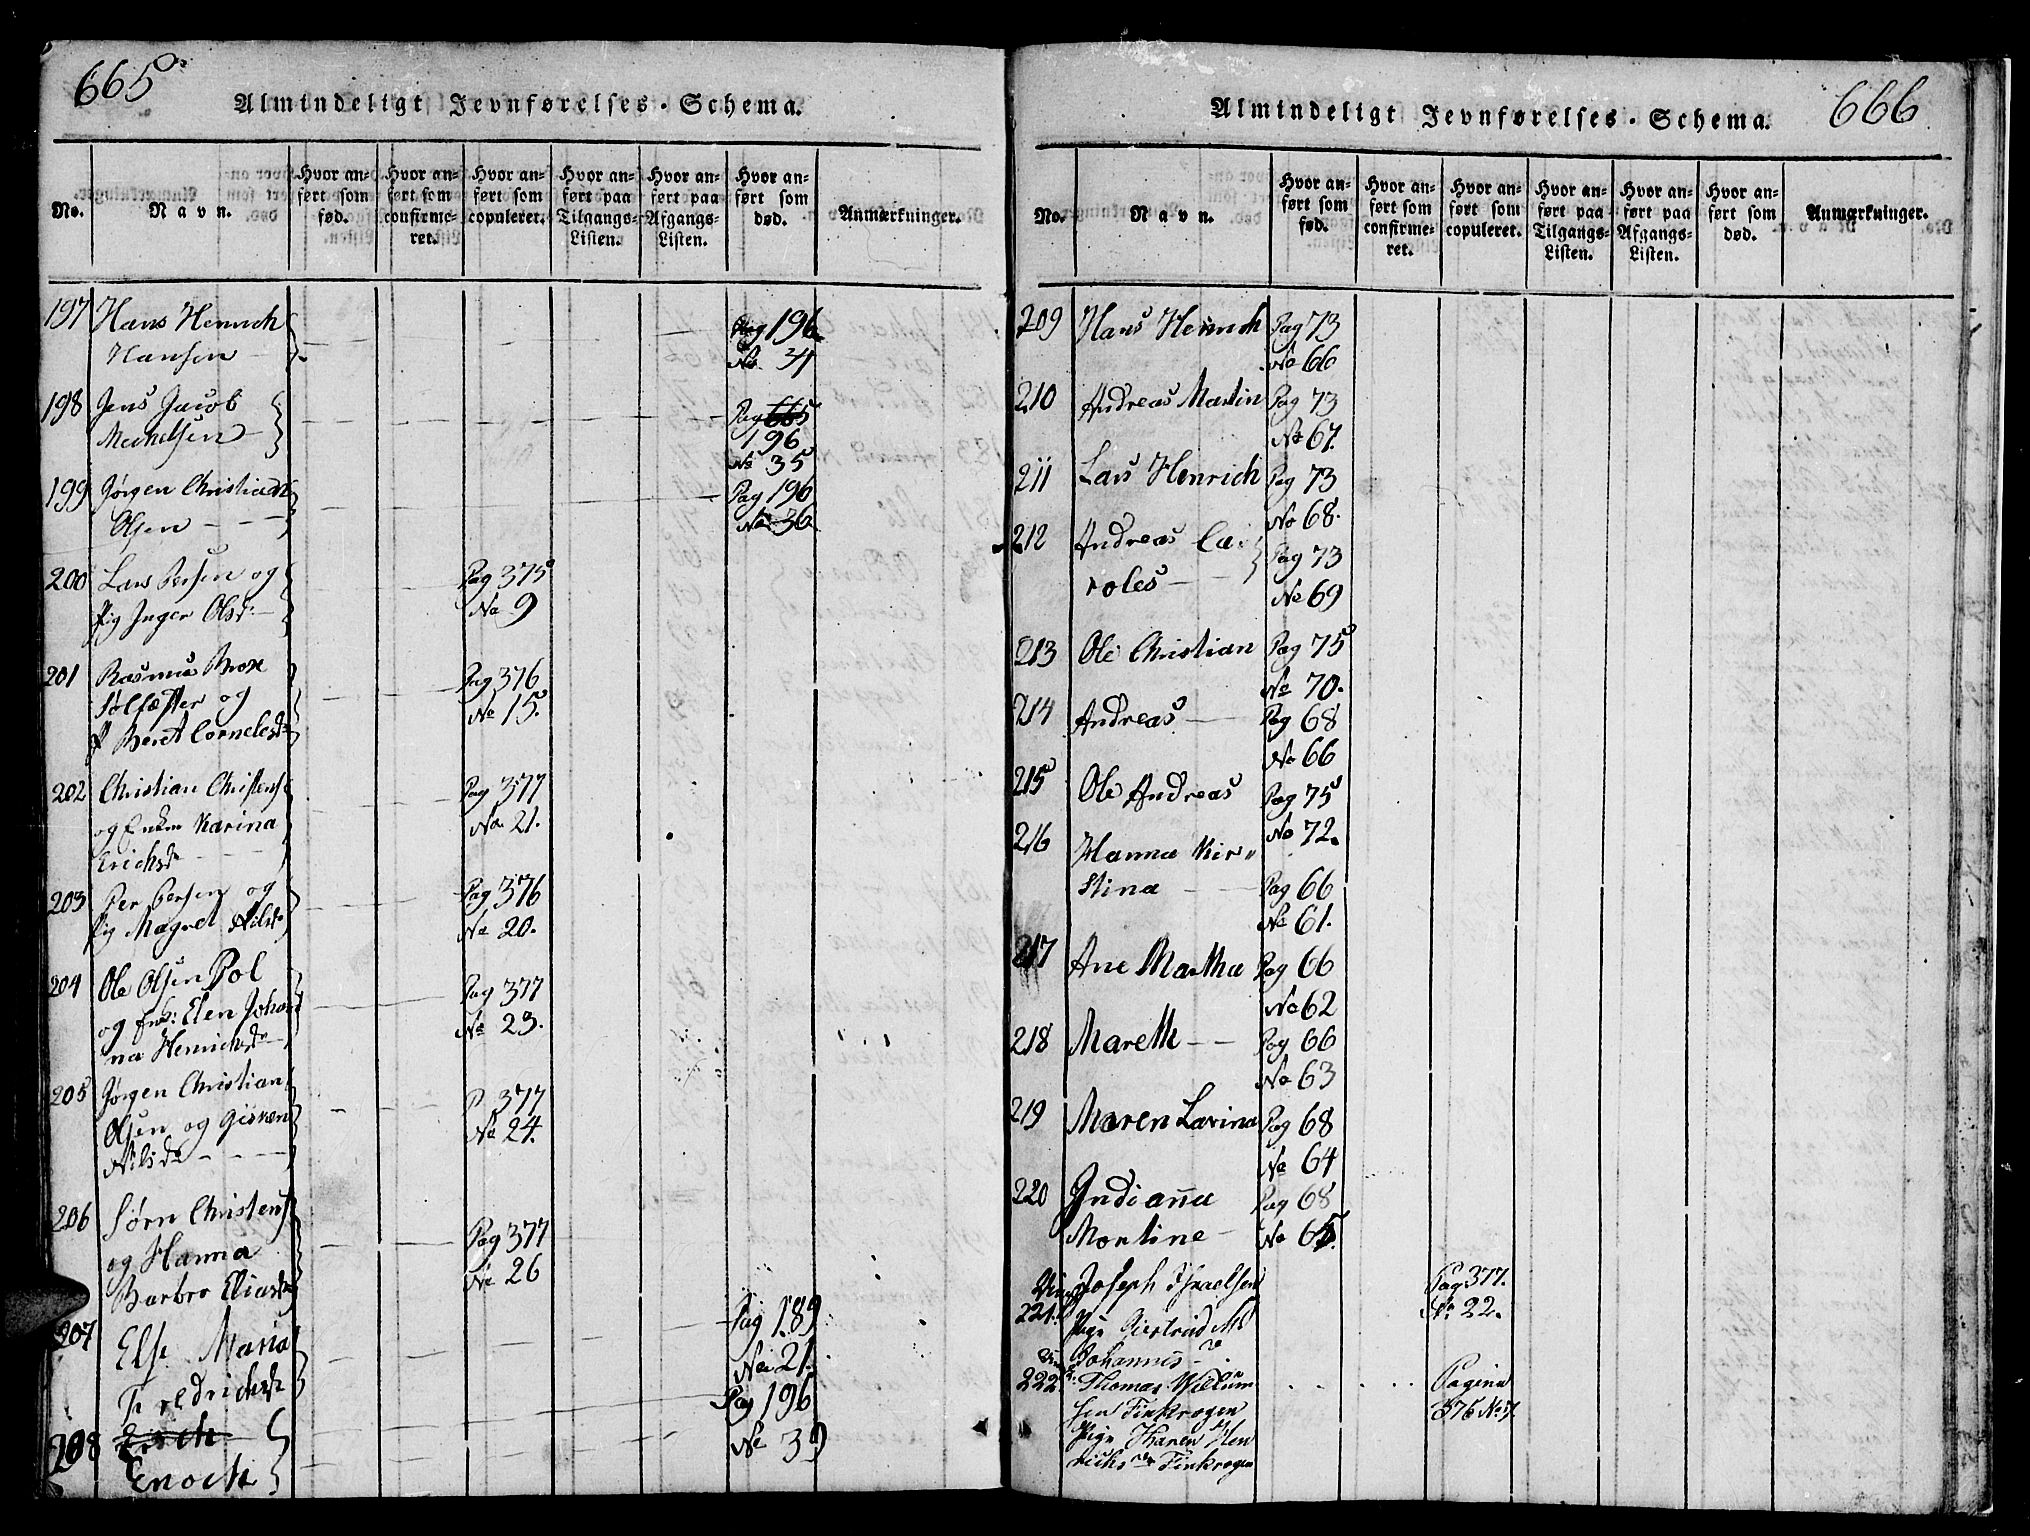 665
Almindeligt Jevnførelses-Schema.
No.
Navn.
Hvor anført som fød.
Hvor anført som confirmeret.
Hvor anført som copuleret.
Hvor anført paa Tilgangs-Listen.
Hvor anført paa Afgangs-Listen.
Hvor anført som død.
Anmærkninger.
197 Hans Henrich Pag 196
Hansen No 34
198 Jens Jacob Pag 665
Mechelsen 196
No 35
199 Jørgen Christians Pag 196
Olsen No 36
200 Lars Persen og Pag 375
Pig Inger Olsd: No 9
201 Rasmus Brox Pag 376
Sølfæster og No 15.
P Beret Cornelsdr
202 Christian Christens Pag 377
og Enken Karina No 21.
Erichsdr
203 Per Persen og Pag 376
Pig Magret Nilsdr No 20.
204 Ole Olsen Pol Pag 377
og Enk: Elen Johan No 23.
na Henrichsdr
205 Jørgen Christian P 377
Olsen og Gisken No 24.
Nilsdr
206 Sørn Christens Pag 377
og Hanna No 26
Barbro Eliasdr
207 Else Maria Pag 189
Fredrichsdr No 21.
208 Erich Pag 196
Enoch No 39
666
Almindeligt Jevnførelses-Schema.
No.
Navn.
Hvor anført som fød.
Hvor anført som confirmeret.
Hvor anført som copuleret.
Hvor anført paa Tilgangs-Listen.
Hvor anført paa Afgangs-Listen.
Hvor anført som død.
Anmærkninger.
209 Hans Henrich Pag 73
No 66
210 Andreas Martin Pag 73
No 67.
211 Lars Henrich Pag 73
No 68.
212 Andreas Ca
roles Pag 73
No 69
213 Ole Christian Pag 75
No 70.
214 Andreas Pag 68
No 66
215 Ole Andreas Pag 75
No 72.
216 Hanna Kir„
stina Pag 66
No 61.
217 Ane Martha Pag 66
No 62
218 Mareth Pag 66
No 63
219 Maren Larina Pag 68
No 64
220 Indiana Pag 68
Montine No 65.
Joseph Israelsen Pag 377.
221. Pige Giertrud No 22.
Johannis
222 Thomas Willum Pagina
sen Finkrogen 376 No 7.
Pige Karen Hen
richs Finkrogen